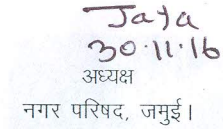 Jaya
30.11.16
अध्यक्ष
नगर परिषद, जमुई।